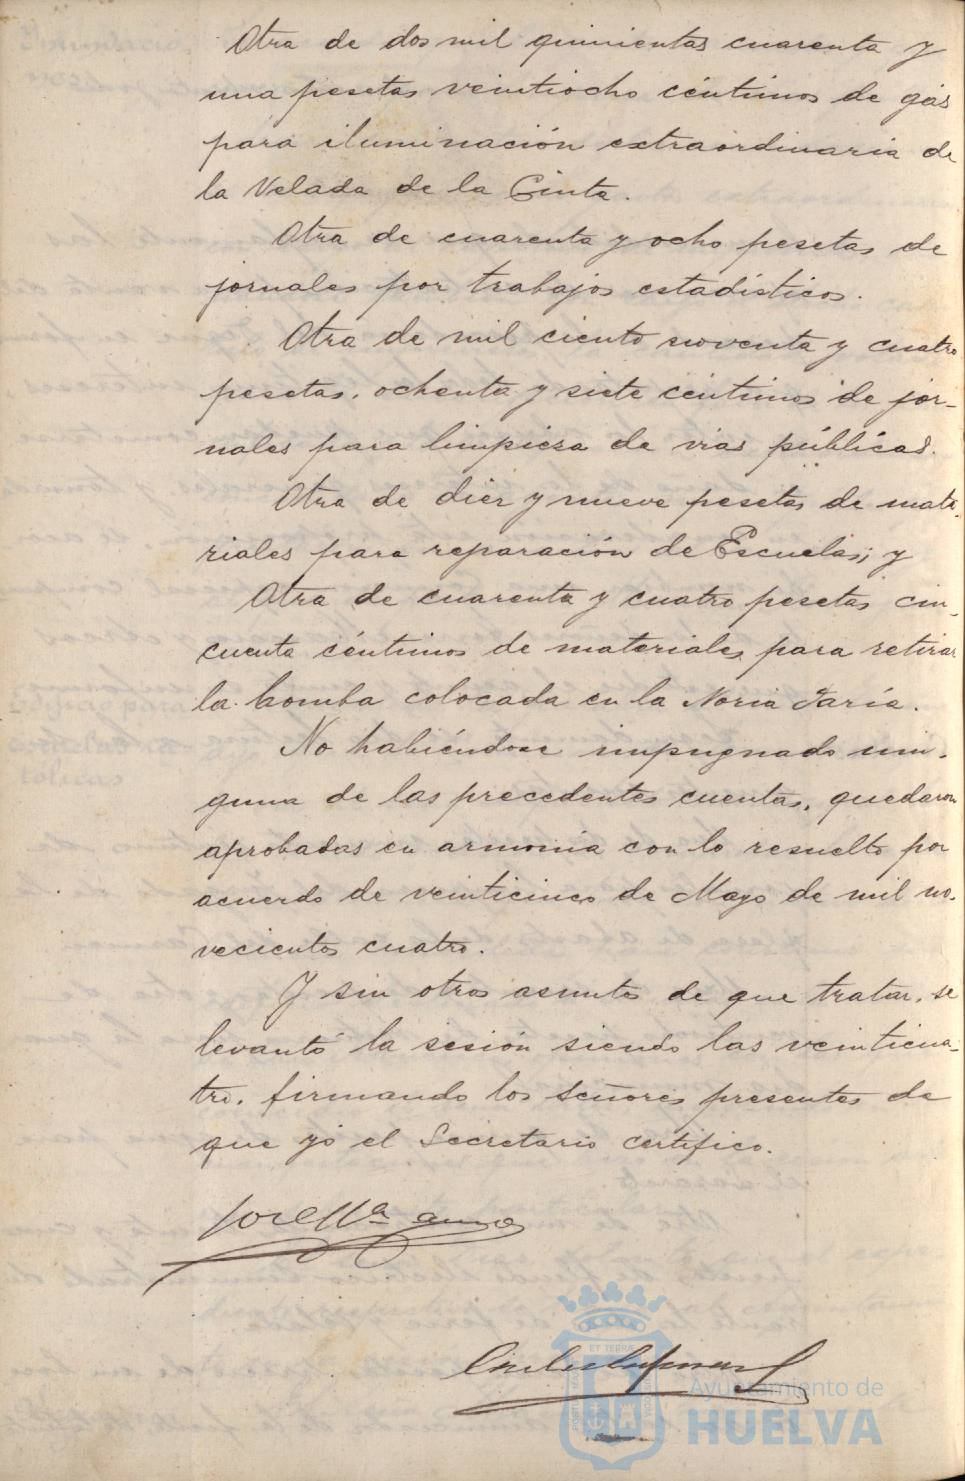 Otra de dos mil quinientas cuarenta y
una pesetas veintiocho céntimos de gás
para iluminación extraordinaria de
la Velada de la Cinta.
Otra de cuarenta y ocho pesetas de
jornales por trabajos estadísticos.
Otra de mil ciento noventa y cuatro
pesetas, ochenta y siete céntimos de jor-
nales para limpieza de vias públicas.
Otra de diez y nueve pesetas de mate-
riales para reparación de Escuelas; y
Otra de cuarenta y cuatro pesetas cin-
cuenta céntimos de materiales para retirar
la bomba colocada en la Noria
No habiéndose impugnado nin-
guna de las precedentes cuentas, quedaron
aprobadas en armonía con lo resuelto por
acuerdo de veinticinco de Mayo de mil no-
vecientos cuatro.
Y sin otros asuntos de que tratar, se
levantó la sesión siendo las veinticua-
tro, firmando los Señores presentes de
que yó el Secretario certifico.
José Mª
Ayuntamiento de
HUELVA